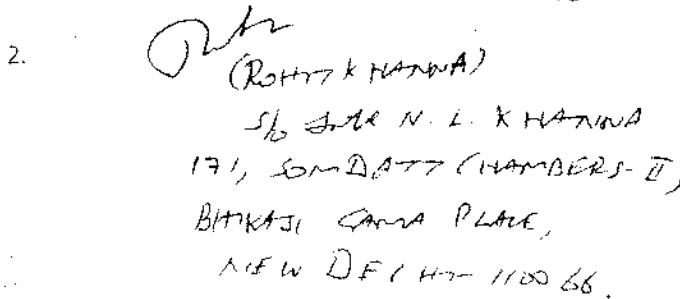 2.
(ROHIT KHANNA)
S/o Late N. L. KHANNA
171, SOMDATT CHAMBERS-II,
BHIKAJI CAMA PLACE,
NEW DELHI-110066.